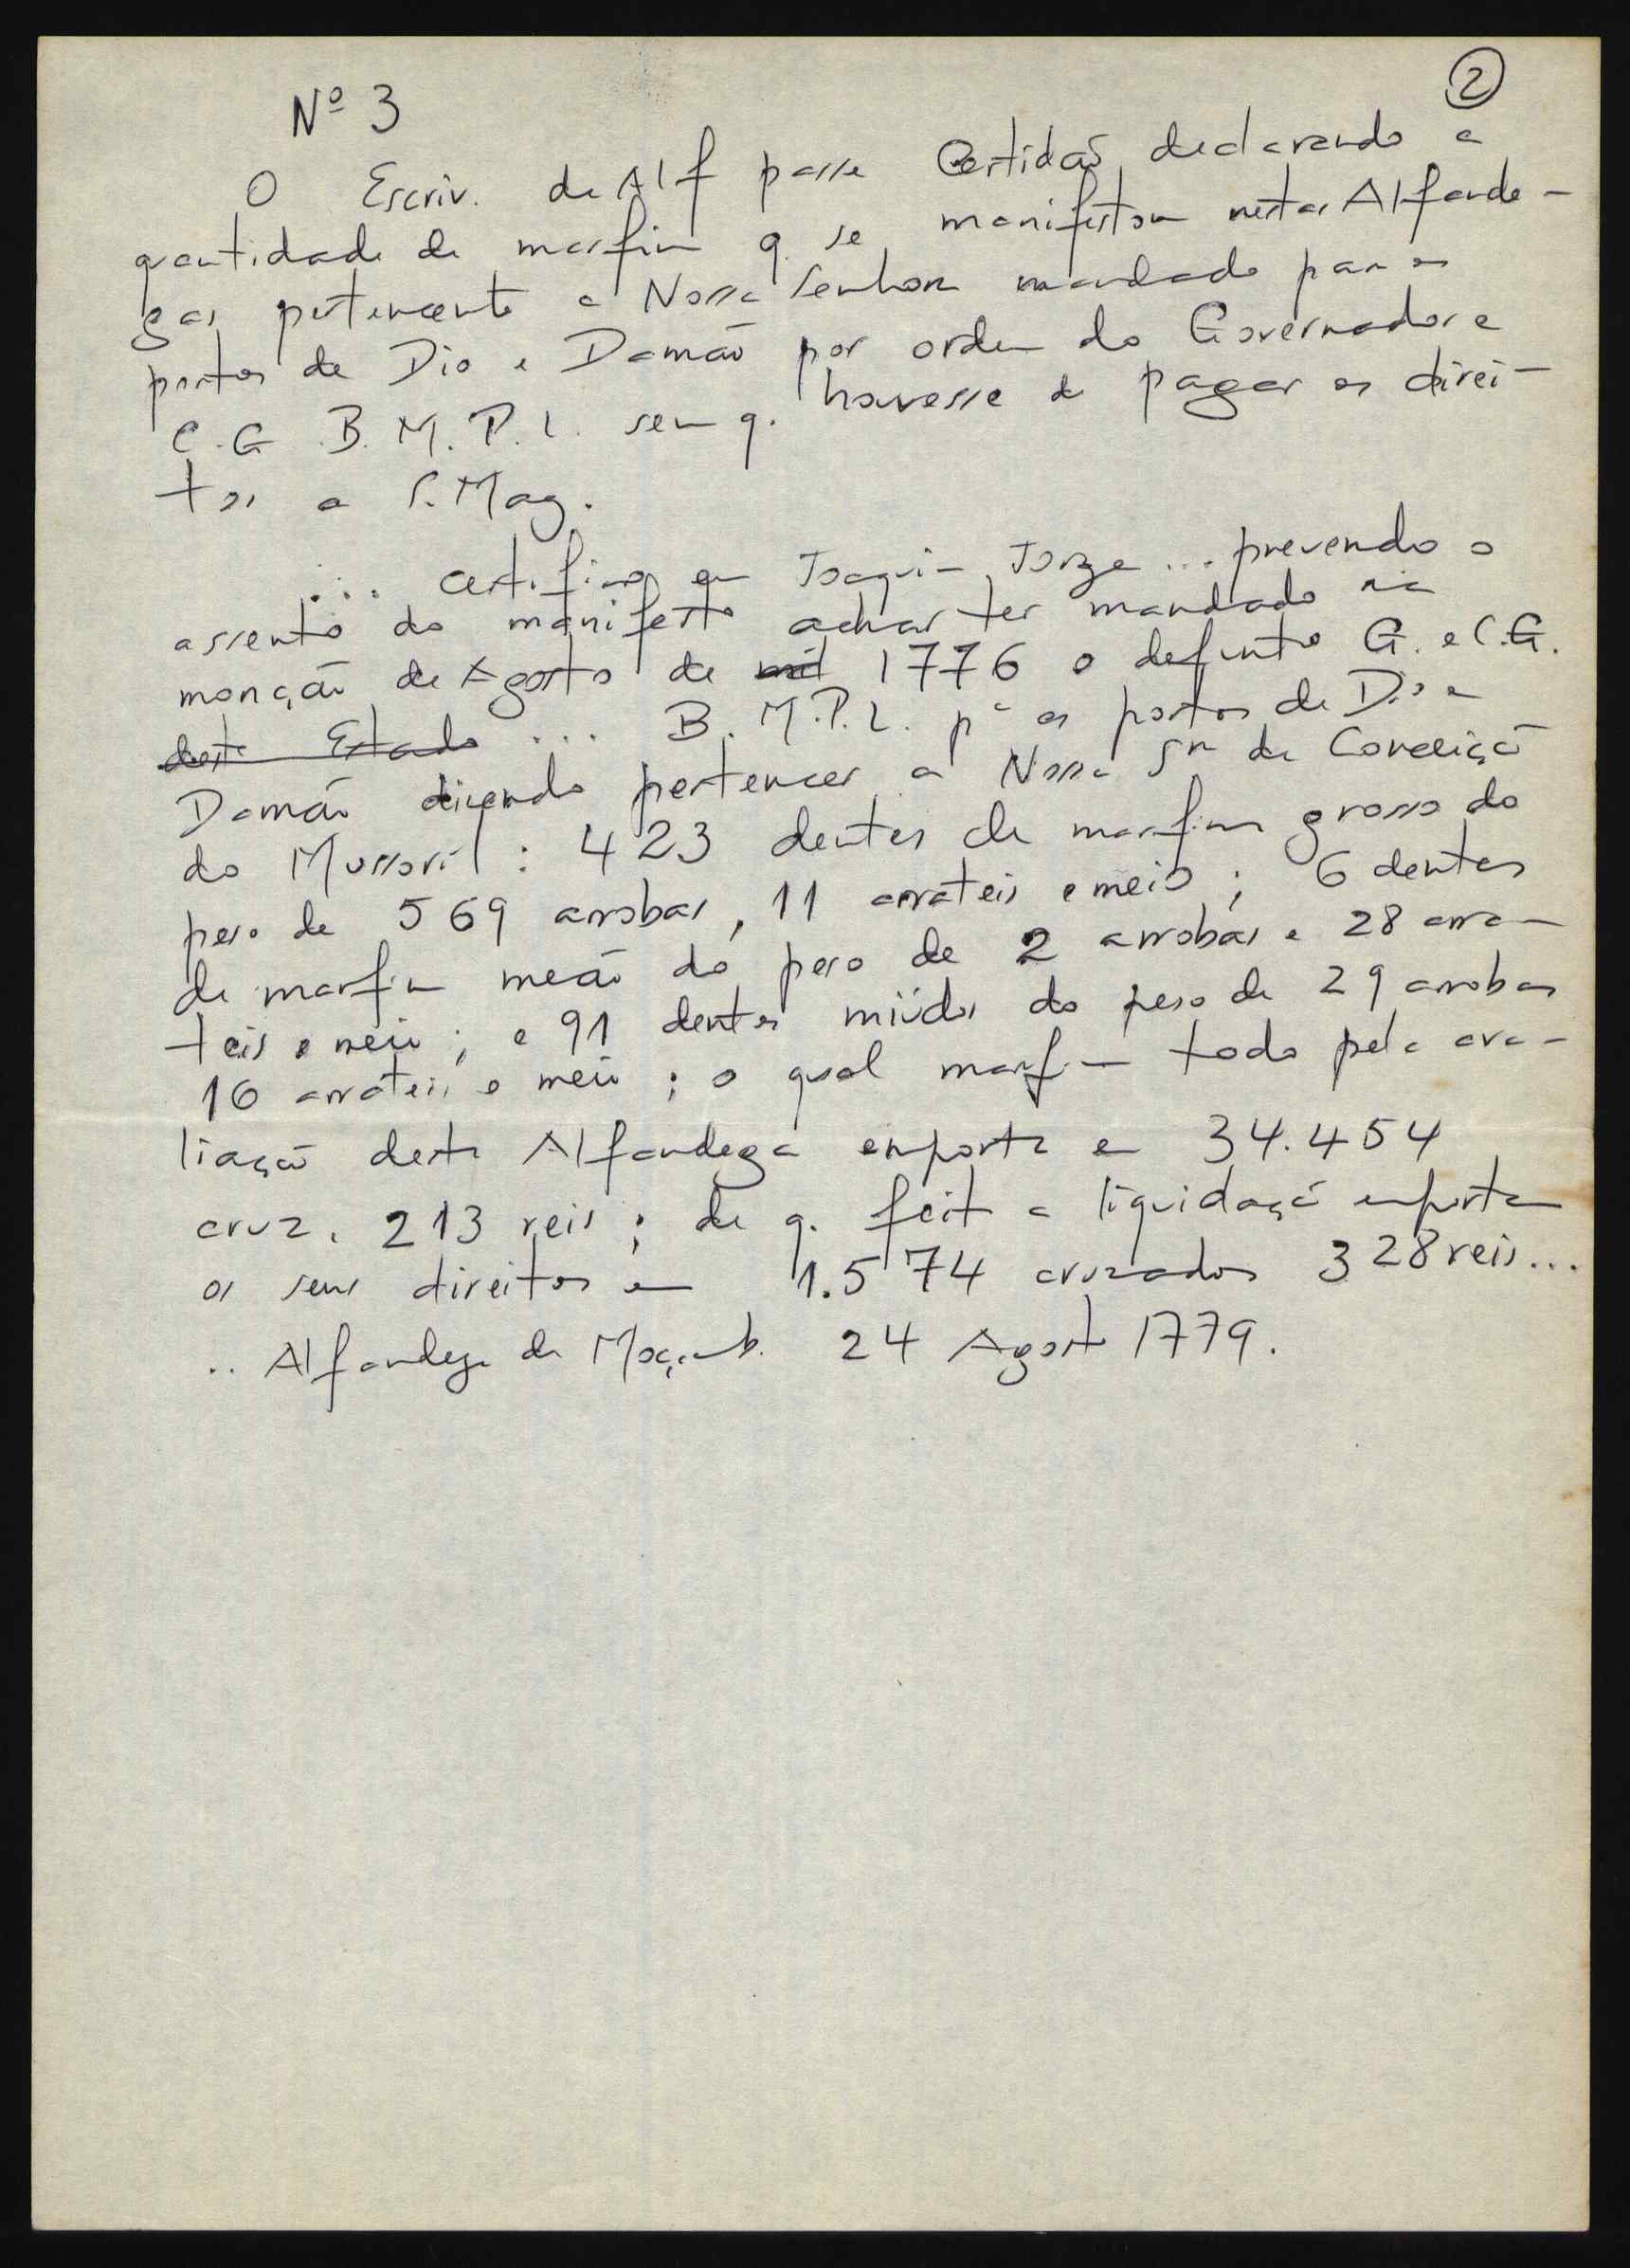 2
Nº 3
O Escriv. da Alf passe Certidaõ declarando a
quantidade de marfim q. se manifestou nestas Alfande-
gas pertencente a Nossa Senhora mandado para os
portos de Dio e Damão por ordem do Governador e
C.G B.M.P.L. sem q. houvesse de pagar os direi-
tos a S. Mag.
... certifico eu Joaquim Jorge ... prevendo o
assento do manifesto achar ter mandado na
monção de Agosto de mil 1776 o defunto G. e C.G.
deste Estado ... B.M.P.L. pª os portos de Dio e
Damão dizendo pertencer a Nossa Srª da Conceiçã
do Mussoril : 423 dentes de marfim grosso do
peso de 569 arrobas, 11 arráteis e meio ; 6 dentes
de marfim meão do peso de 2 arrobas e 28 arra-
teis e meio ; e 91 dentes miúdos do peso de 29 arrobas
16 arrateis e meio ; o qual marfim todo pela ava-
liação desta Alfandega emporta em 34.454
cruz. 213 reis ; de q. feita a liquidaçã emportam
os seus direitos em 1.574 cruzados 328 reis...
.. Alfandega de Moçamb. 24 Agosto 1779.